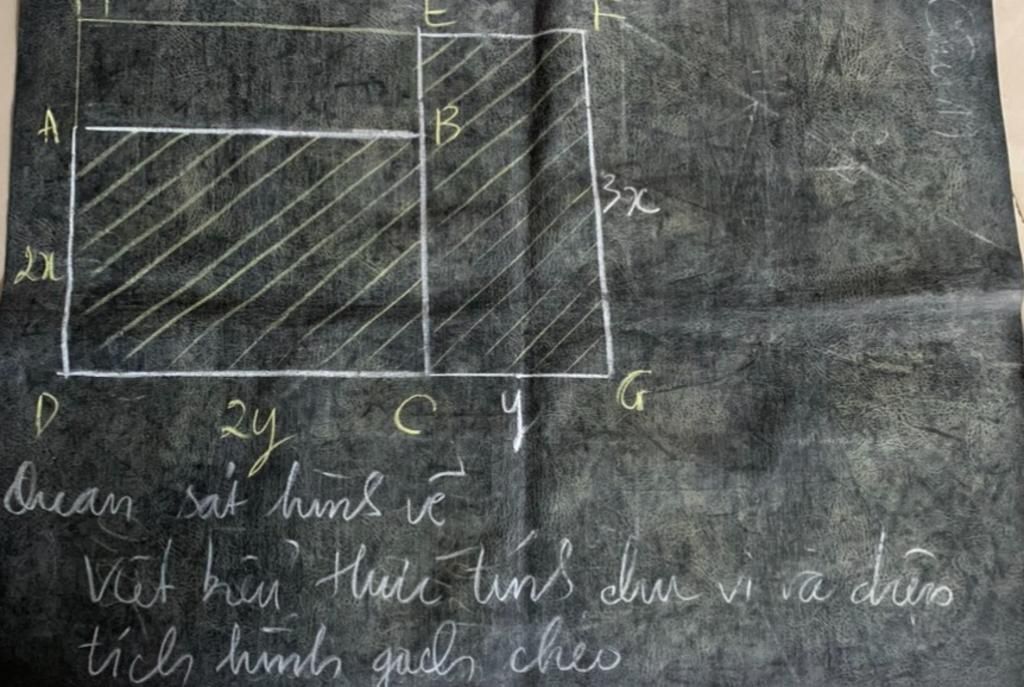 E F
A B
3x
2x
D 2y C y G
Quan sát hình vẽ
Viết biểu thức tính chu vi và diện
tích hình gạch chéo